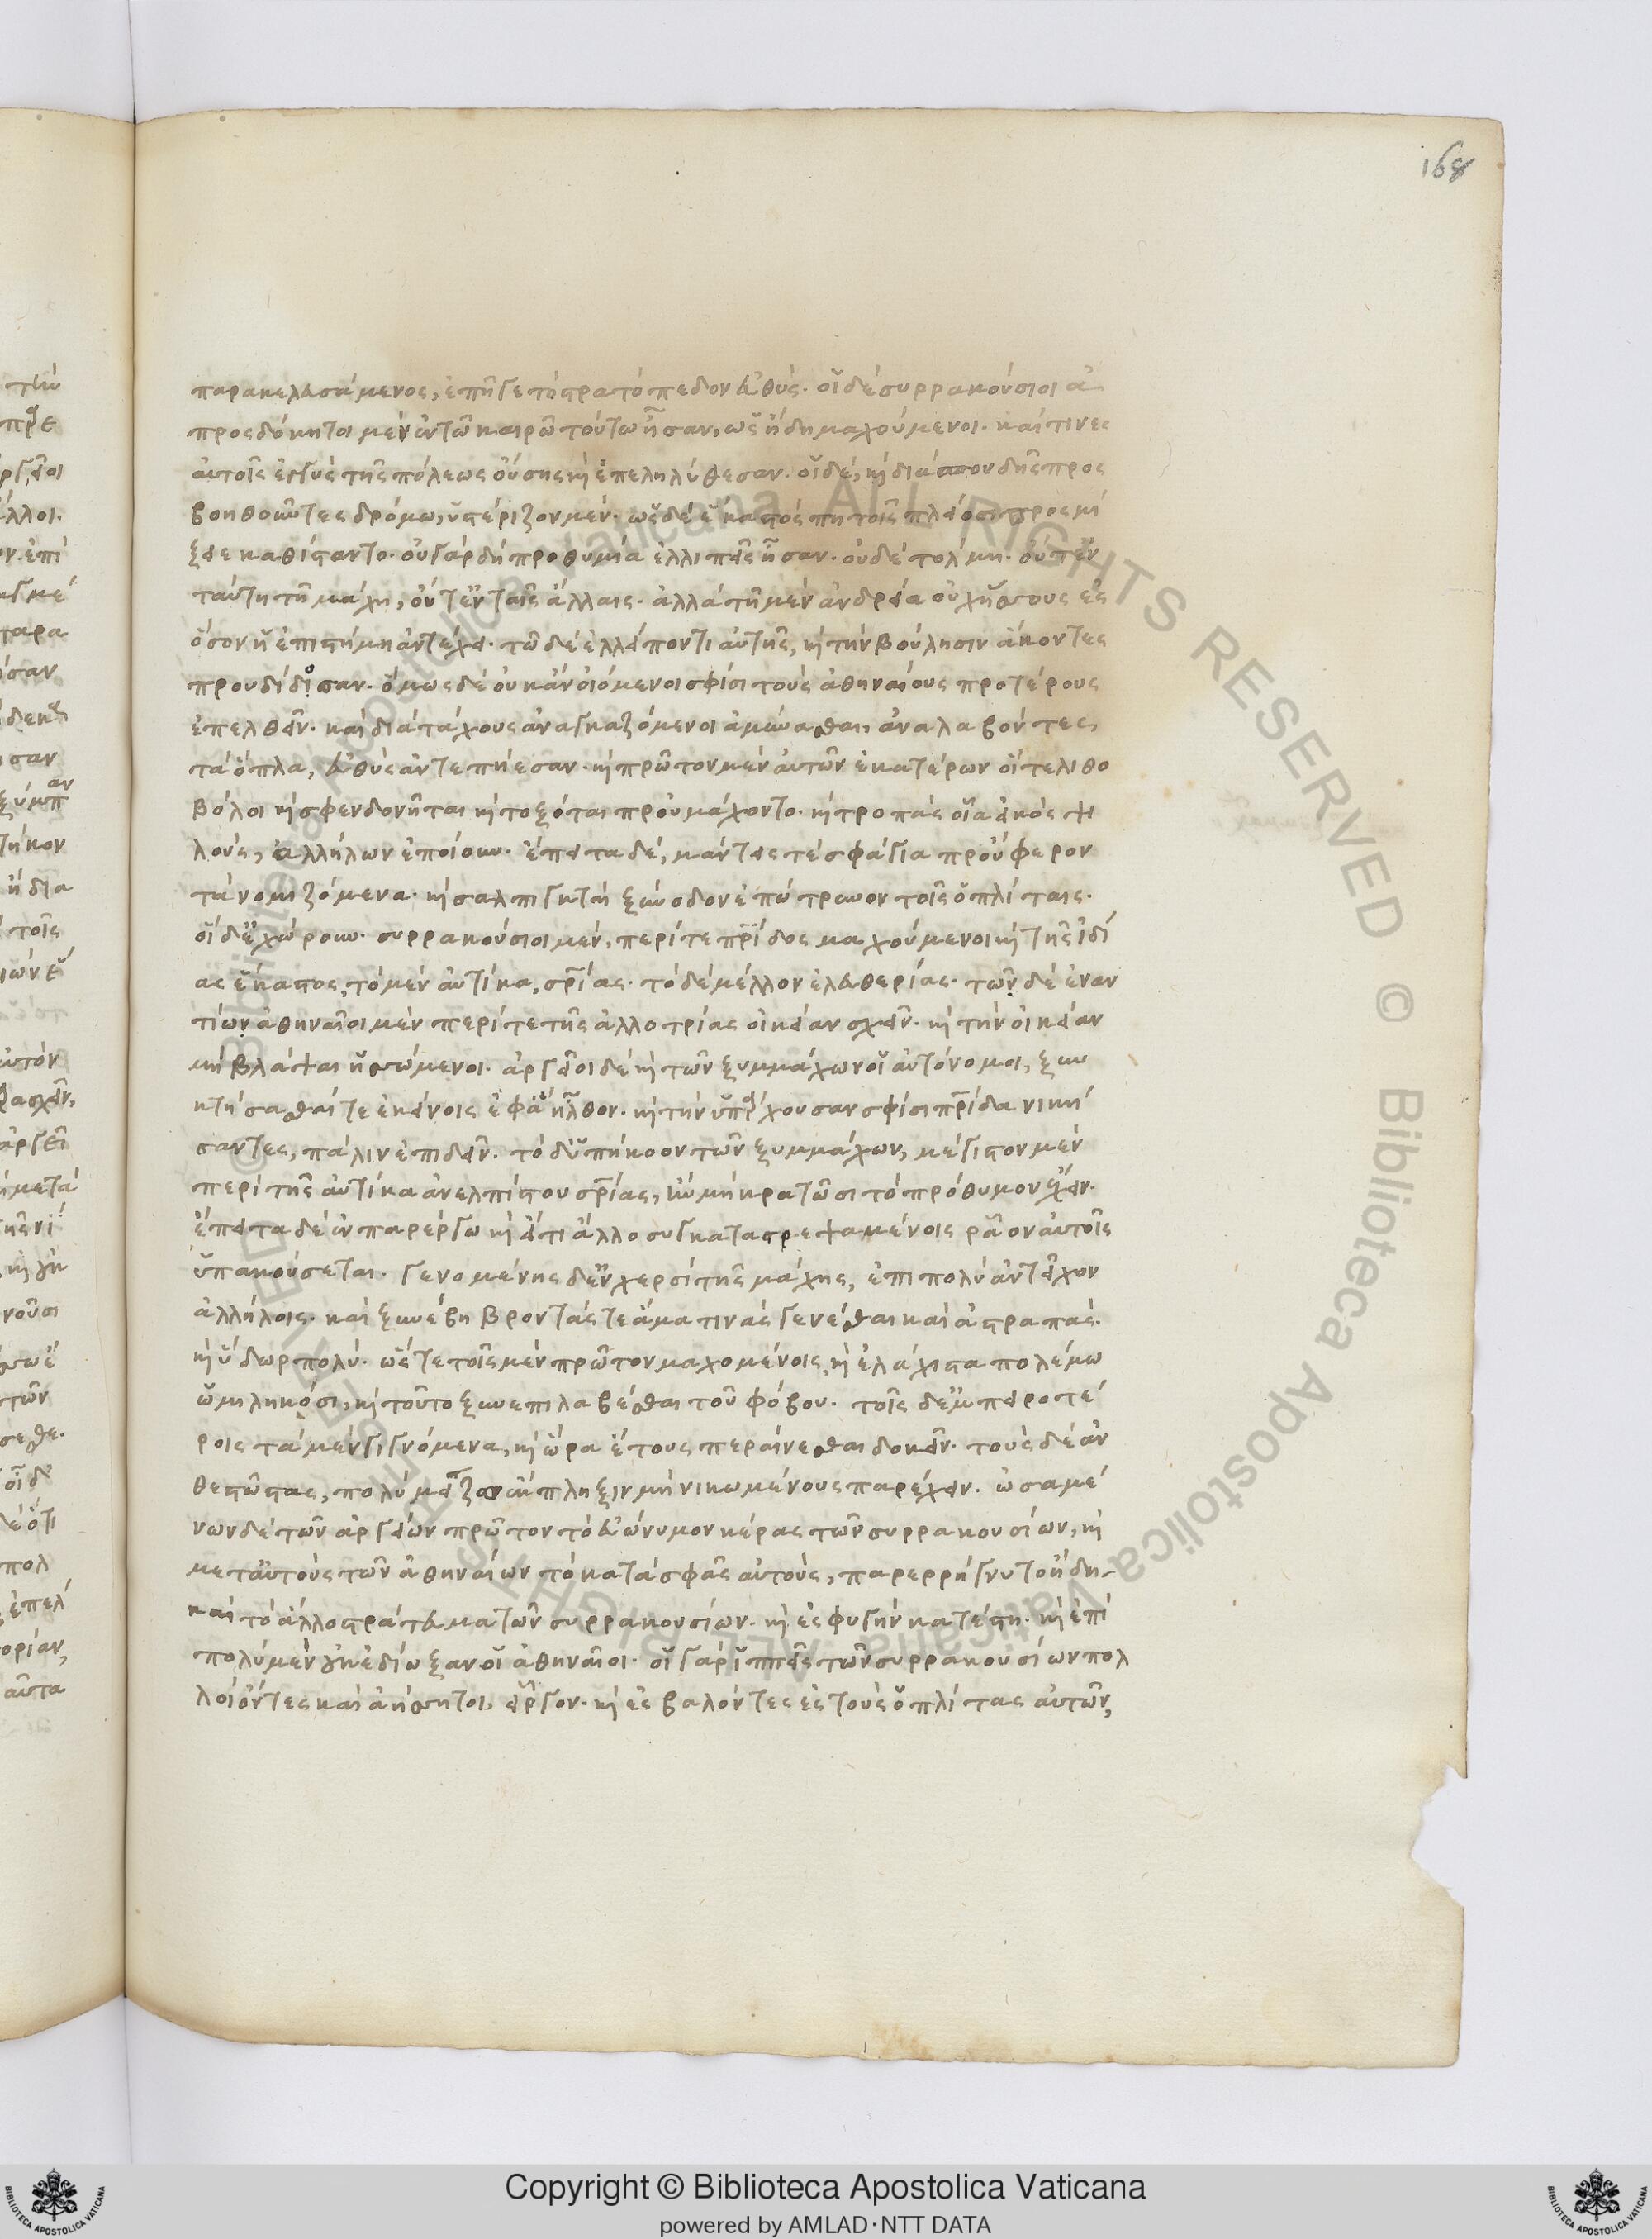 168
παρακελευσάμενος, ἐπῆγε τὸ στρατόπεδον εὐθύς. οἱ δὲ συρρακούσιοι ἀ
προσδόκητοι μὲν ἐν τῶ καιρῶ τούτω ἦσαν, ὡς ἤδη μαχούμενοι. καί τινες
αὐτοῖς ἐγγὺς τῆς πόλεως οὔσης καὶ ἐπεληλύθεσαν. οἱ δὲ, καὶ διὰ σπουδῆς προς
βοηθοῦντες δρόμω, ὑστέριζον μέν. ὡς δὲ ἕκαστός πη τοῖς πλείοσι προσμί
ξειε καθίσταντο. οὐ γὰρ δὴ προθυμία ἐλλιπεῖς ἦσαν. οὐδὲ τόλμη. οὔτ' ἐν
ταύτη τῆ μάχη, οὔτ' ἐν ταῖς ἄλλαις. ἀλλὰ τῆ μὲν ἀνδρεία οὐχ ἥσσους ἐς
ὅσον ἡ ἐπιστήμη ἀντέχει. τῶ δὲ ἐλλείποντι αὐτῆς, καὶ τὴν βούλησιν ἄκοντες
προυδίδοσαν. ὅμως δὲ οὐκ ἂν οἰόμενοι σφίσι τοὺς ἀθηναίους προτέρους
ἐπελθεῖν. καὶ διὰ τάχους ἀναγκαζόμενοι ἀμύνασθαι, ἀναλαβόντες
τὰ ὅπλα, εὐθὺς ἀντεπήεσαν. καὶ πρῶτον μὲν αὐτῶν ἑκατέρων οἵ τε λιθο
βόλοι καὶ σφενδονῆται καὶ τοξόται προὐμάχοντο. καὶ τροπὰς οἷα εἰκὸς ψι
λοὺς, ἀλλήλων ἐποίουν. ἔπειτα δὲ, μάντεις τε σφάγια προὔφερον
τὰ νομιζόμενα. καὶ σαλπιγκταὶ ξύνοδον ἐπώτρυνον τοῖς ὁπλίταις.
οἱ δ' ἐχώρουν. συρρακούσιοι μὲν, περί τε πατρίδος μαχούμενοι καὶ τῆς ἰδί
ας ἕκαστος, τὸ μὲν αὐτίκα, σωτηρίας. τὸ δὲ μέλλον ἐλευθερίας. τῶν δὲ ἐναν
τίων ἀθηναῖοι μὲν περί τε τῆς ἀλλοτρίας οἰκείαν σχεῖν. καὶ τὴν οἰκείαν
μὴ βλάψαι ἡσσώμενοι. ἀργεῖοι δὲ καὶ τῶν ξυμμάχων οἱ αὐτόνομοι, ξυγ
κτήσασθαί τε ἐκείνοις ἐφ' ἃ ἦλθον. καὶ τὴν ὑπάρχουσαν σφίσι πατρίδα νική
σαντες, πάλιν ἐπιδεῖν. τὸ δ' ὑπήκοον τῶν ξυμμάχων, μέγιστον μὲν
περὶ τῆς αὐτίκα ἀνελπίστου σωτηρίας, ἢν μὴ κρατῶσι τὸ πρόθυμον εἶχεν.
ἔπειτα δὲ ἐν παρέργω καὶ εἴ τι ἄλλο συγκαταστρεψαμένοις ρᾶον αὐτοῖς
ὑπακούσεται. γενομένης δ' ἐν χερσὶ τῆς μάχης, ἐπὶ πολὺ ἀντεῖχον
ἀλλήλοις. καὶ ξυνέβη βροντάς τε ἅμα τινὰς γενέσθαι καὶ ἀστραπὰς.
καὶ ὕδωρ πολύ. ὥστε τοῖς μὲν πρῶτον μαχομένοις, καὶ ἐλάχιστα πολέμω
ὡμιληκόσι, καὶ τοῦτο ξυνεπιλαβέσθαι τοῦ φόβου. τοῖς δ' ἐμπειροτέ
ροις τὰ μὲν γιγνόμενα, καὶ ὥρα ἔτους περαίνεσθαι δοκεῖν. τοὺς δὲ ἀν
θεστῶτας, πολὺ μείζω ἔκπληξιν μὴ νικωμένους παρέχειν. ὠσαμέ
νων δὲ τῶν ἀργείων πρῶτον τὸ εὐώνυμον κέρας τῶν συρρακουσίων, καὶ
μετ' αὐτοὺς τῶν ἀθηναίων τὸ κατὰ σφᾶς αὐτοὺς, παρερρήγνυτο ἤδη
καὶ τὸ ἄλλο στράτευμα τῶν συρρακουσίων. καὶ ἐς φυγὴν κατέστη. καὶ ἐπὶ
πολὺ μὲν οὐκ ἐδίωξαν οἱ ἀθηναῖοι. οἱ γὰρ ἱππεῖς τῶν συρρακουσίων πολ
λοὶ ὄντες καὶ ἀήσσητοι, εἶργον. καὶ ἐσβαλόντες ἐς τοὺς ὁπλίτας αὐτῶν,
© Biblioteca Apostolica Vaticana ALL RIGHTS RESERVED © Biblioteca Apostolica Vaticana ALL RIGHTS RESERVED
Copyright © Biblioteca Apostolica Vaticana
powered by AMLAD·NTT DATA
BIBLIOTECA APOSTOLICA VATICANA
BIBLIOTECA APOSTOLICA VATICANA